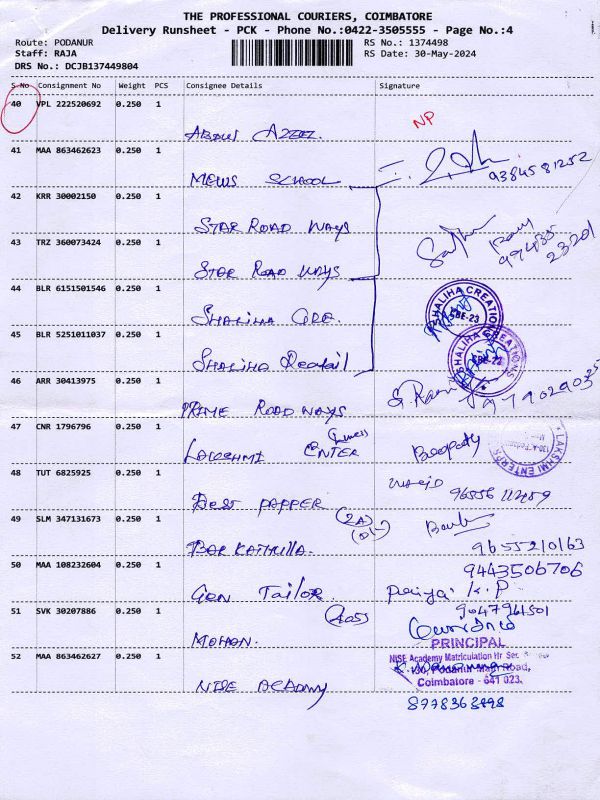 THE PROFESSIONAL COURIERS, COIMBATORE
Delivery Runsheet - PCK - Phone No.:0422-3505555 - Page No.:4
Route: PODANUR
RS No.: 1374498
Staff: RAJA
RS Date: 30-May-2024
DRS No.: DCJB137449804
S.No Consignment No Weight PCS Consignee Details Signature
40 VPL 222520692 0.250 1
NP
ABDUL AZEEZ.
41 MAA 863462623 0.250 1
9384581252
MEWS SCHOOL
42 KRR 30002150 0.250 1
STAR ROAD WAYS
43 TRZ 360073424 0.250 1
STAR ROAD WAYS
44 BLR 6151501546 0.250 1
SHALIHA CREATION
CBE-23
SHALIHA CRE.
45 BLR 5251011037 0.250 1
SHALIHA CREATIONS
CBE-23
SHALIHA Reatail
46 ARR 30413975 0.250 1
PRIME ROAD WAYS
47 CNR 1796796 0.250 1
LAKSHMI ENTER
LAKSHMI ENTERP
48 TUT 6825925 0.250 1
BEST PAPPER
49 SLM 347131673 0.250 1
9655210163
BARKATHULLA.
50 MAA 108232604 0.250 1
9443506706
GON TAILOR.
51 SVK 30207886 0.250 1
9047961501
MOHON.
PRINCIPAL
52 MAA 863462627 0.250 1
NISE Academy Matriculation Hr Sec.
Podanur Main Road,
Coimbatore - 641 023.
NISE ACADEMY
8778368898